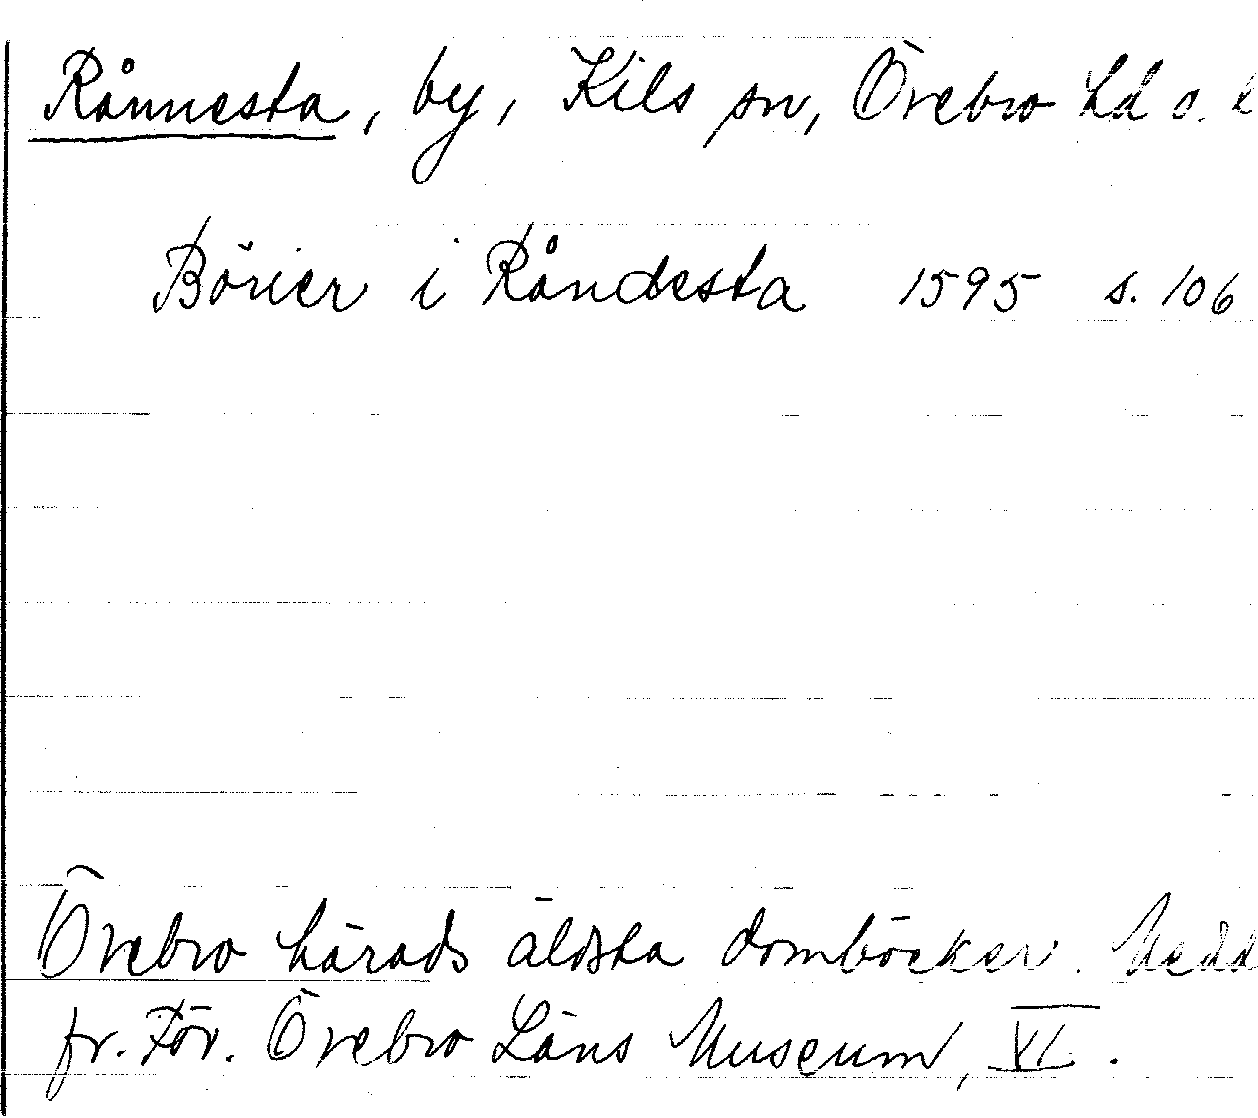 Rånnesta, by, Kils sn, Örebro hd o. l
Börier i Råndesta 1595 s. 106
Örebro härads äldsta domböcker. Medd
fr. För. Örebro Läns Museum, VI.